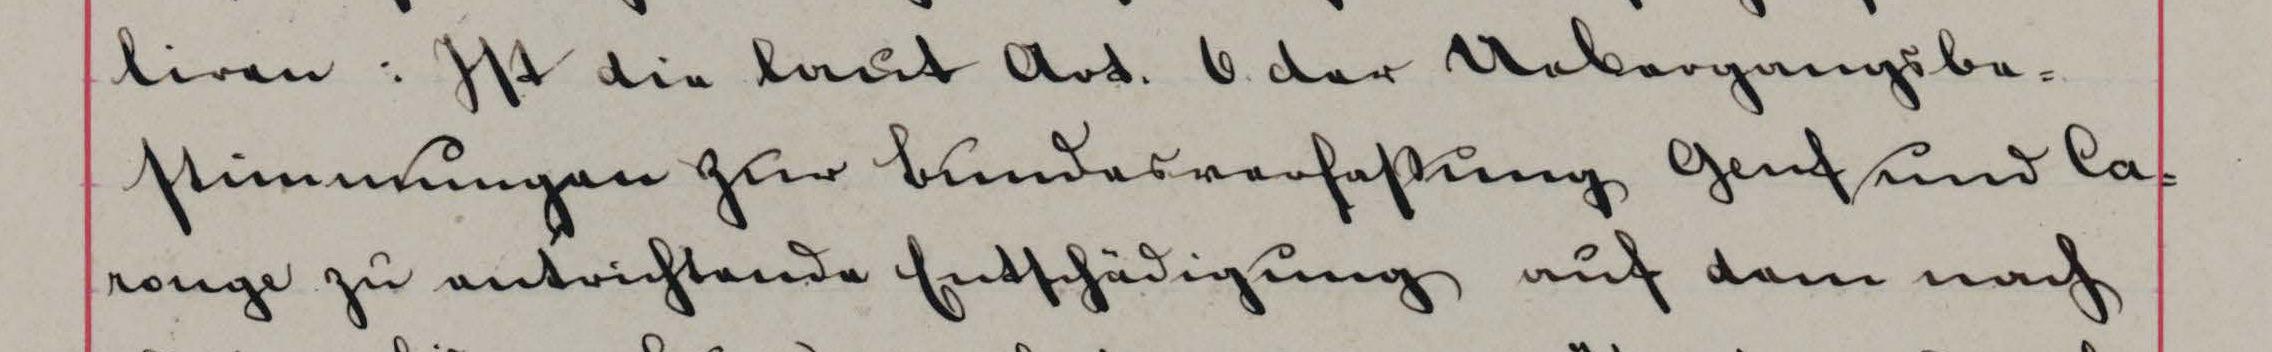 liren : Ist die laut Art. 6 der Uebergangsbe-
stimmungen zur Bundesverfassung Genf und Ca-
rouge zu entrichtende Entschädigung auf dem nach